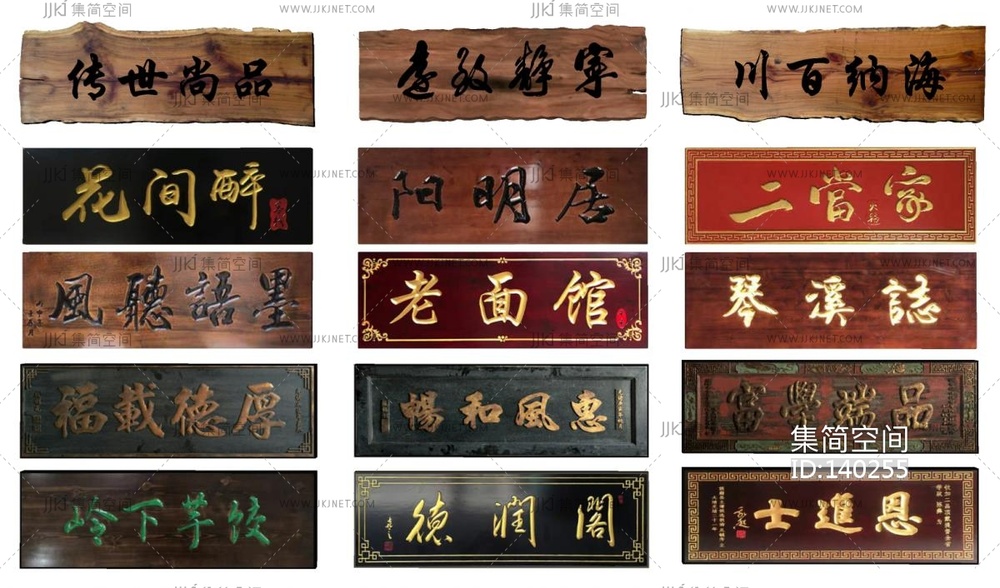 JJKJ 集简空间 WWW.JJKJNET.COM
传世尚品
寧静致远
海纳百川
花间醉
阳明居
二當家
墨語聽風
老面馆
琴溪誌
厚德載福
惠風和暢
品端學富
岭下芋饺
德潤閣
恩進士
集简空间
ID:140255